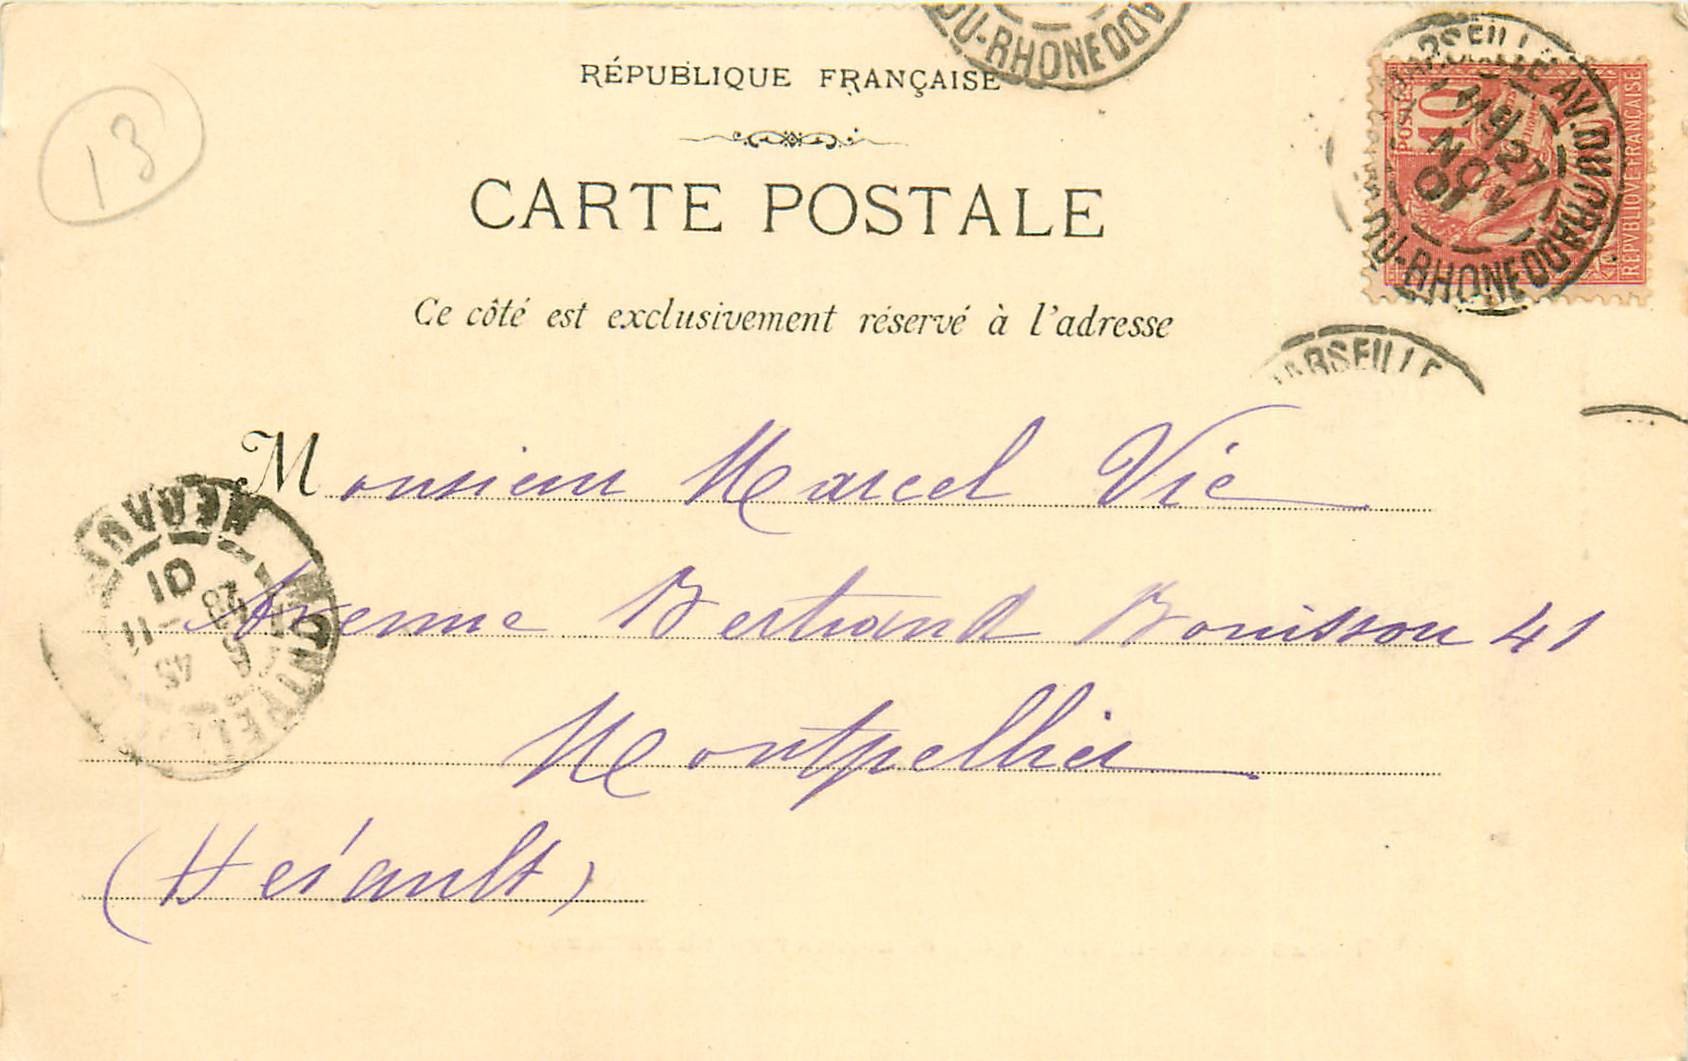 DU-RHONE
RÉPUBLIQUE FRANÇAISE
13
CARTE POSTALE
Ce côté est exclusivement réservé à l'adresse
POSTES
10
REPVBLIQVE FRANÇAISE
MARSEILLE AV. DU PRADO
27
NOV
01
DU-RHONE
MARSEILLE
Monsieur Marcel Vié
Avenue Bertrand Bouisson 41
Montpellier
(Hérault)
MONTPELLIER
HERAULT
6 45
28 -11
01